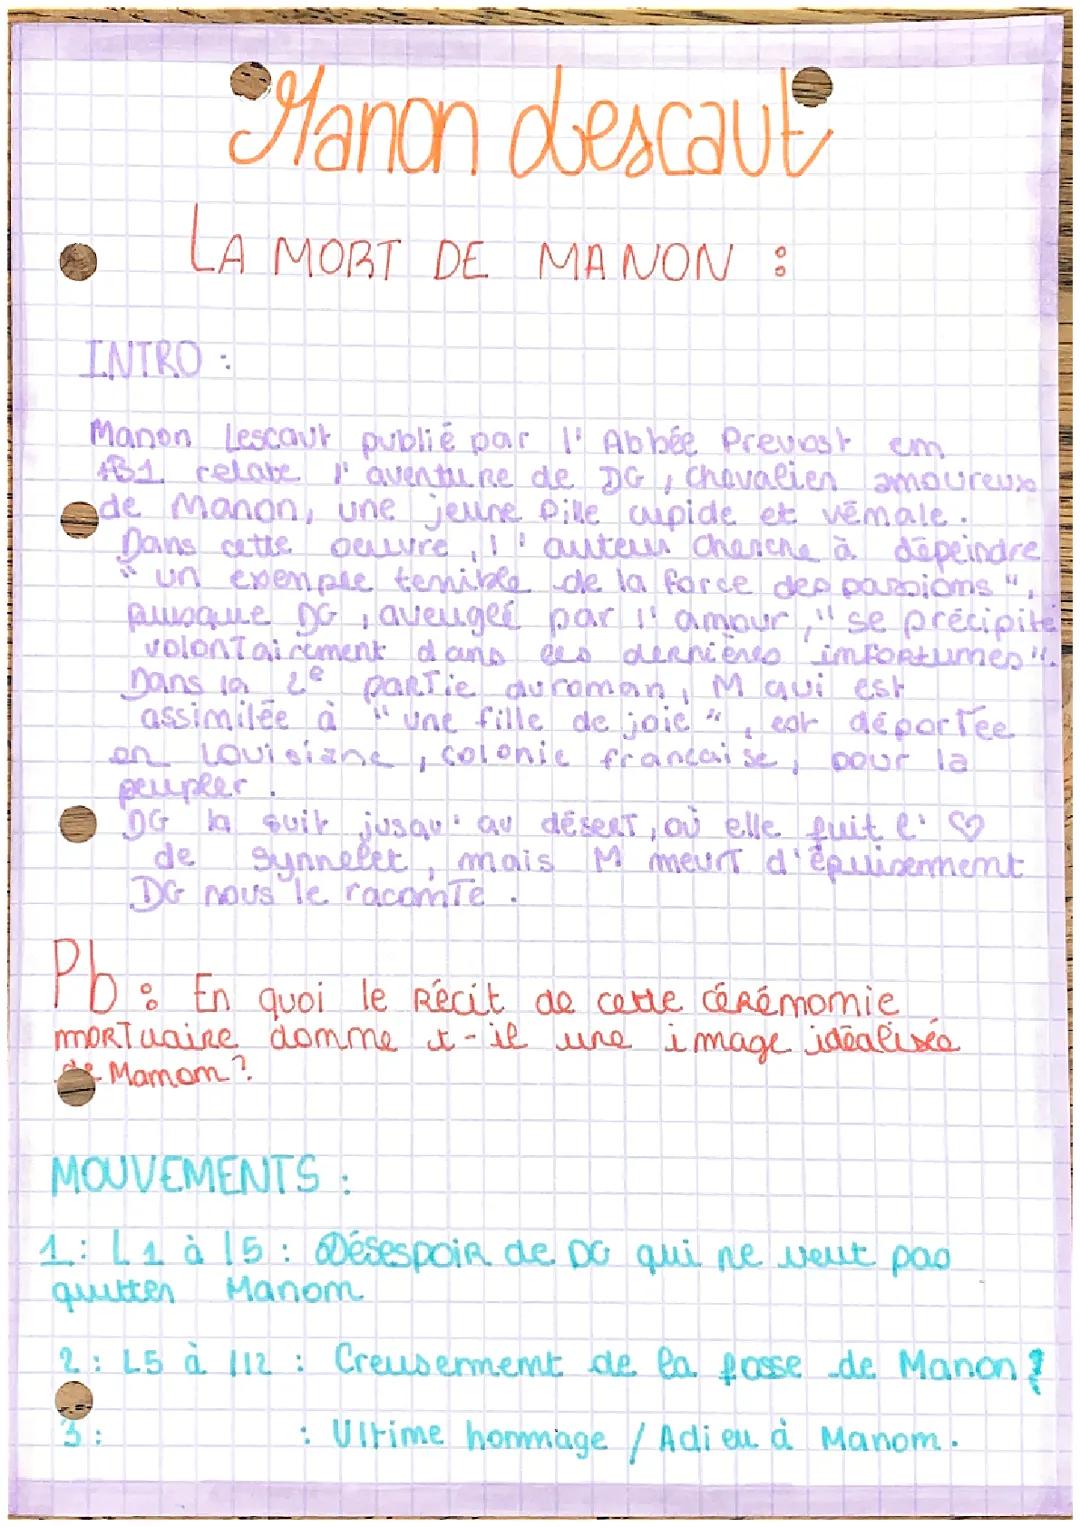 Manon Lescaut
LA MORT DE MANON :
INTRO :
Manon Lescaut publié par l' Abbée Prevost em
1731 relate l'aventure de DG, chevalier amoureux
de Manon, une jeune fille cupide et vémale.
Dans cette oeuvre, l'auteur cherche à dépeindre
"un exemple terrible de la force des passions",
puisque DG, aveuglé par l'amour, "se précipite
volontairement dans les dernières imfortumes".
Dans la 2e partie du roman, M qui est
assimilée à "une fille de joie", est déportée
en Louisiane, colonie francaise, pour la
peupler.
DG la suit jusqu'au désert, où elle fuit l' ♡
de Synnelet, mais M meurt d'épuisemment
DG nous le racomte.
Pb : En quoi le récit de cette cérémomie
mortuaire domme t-il une image idéalisée
de Mamom ?
MOUVEMENTS :
1 : L1 à l5 : Désespoir de DG qui ne veut pas
quitter Manom
2 : L5 à l12 : Creusememt de la fosse de Manon
3 : : Ultime hommage / Adieu à Manom.